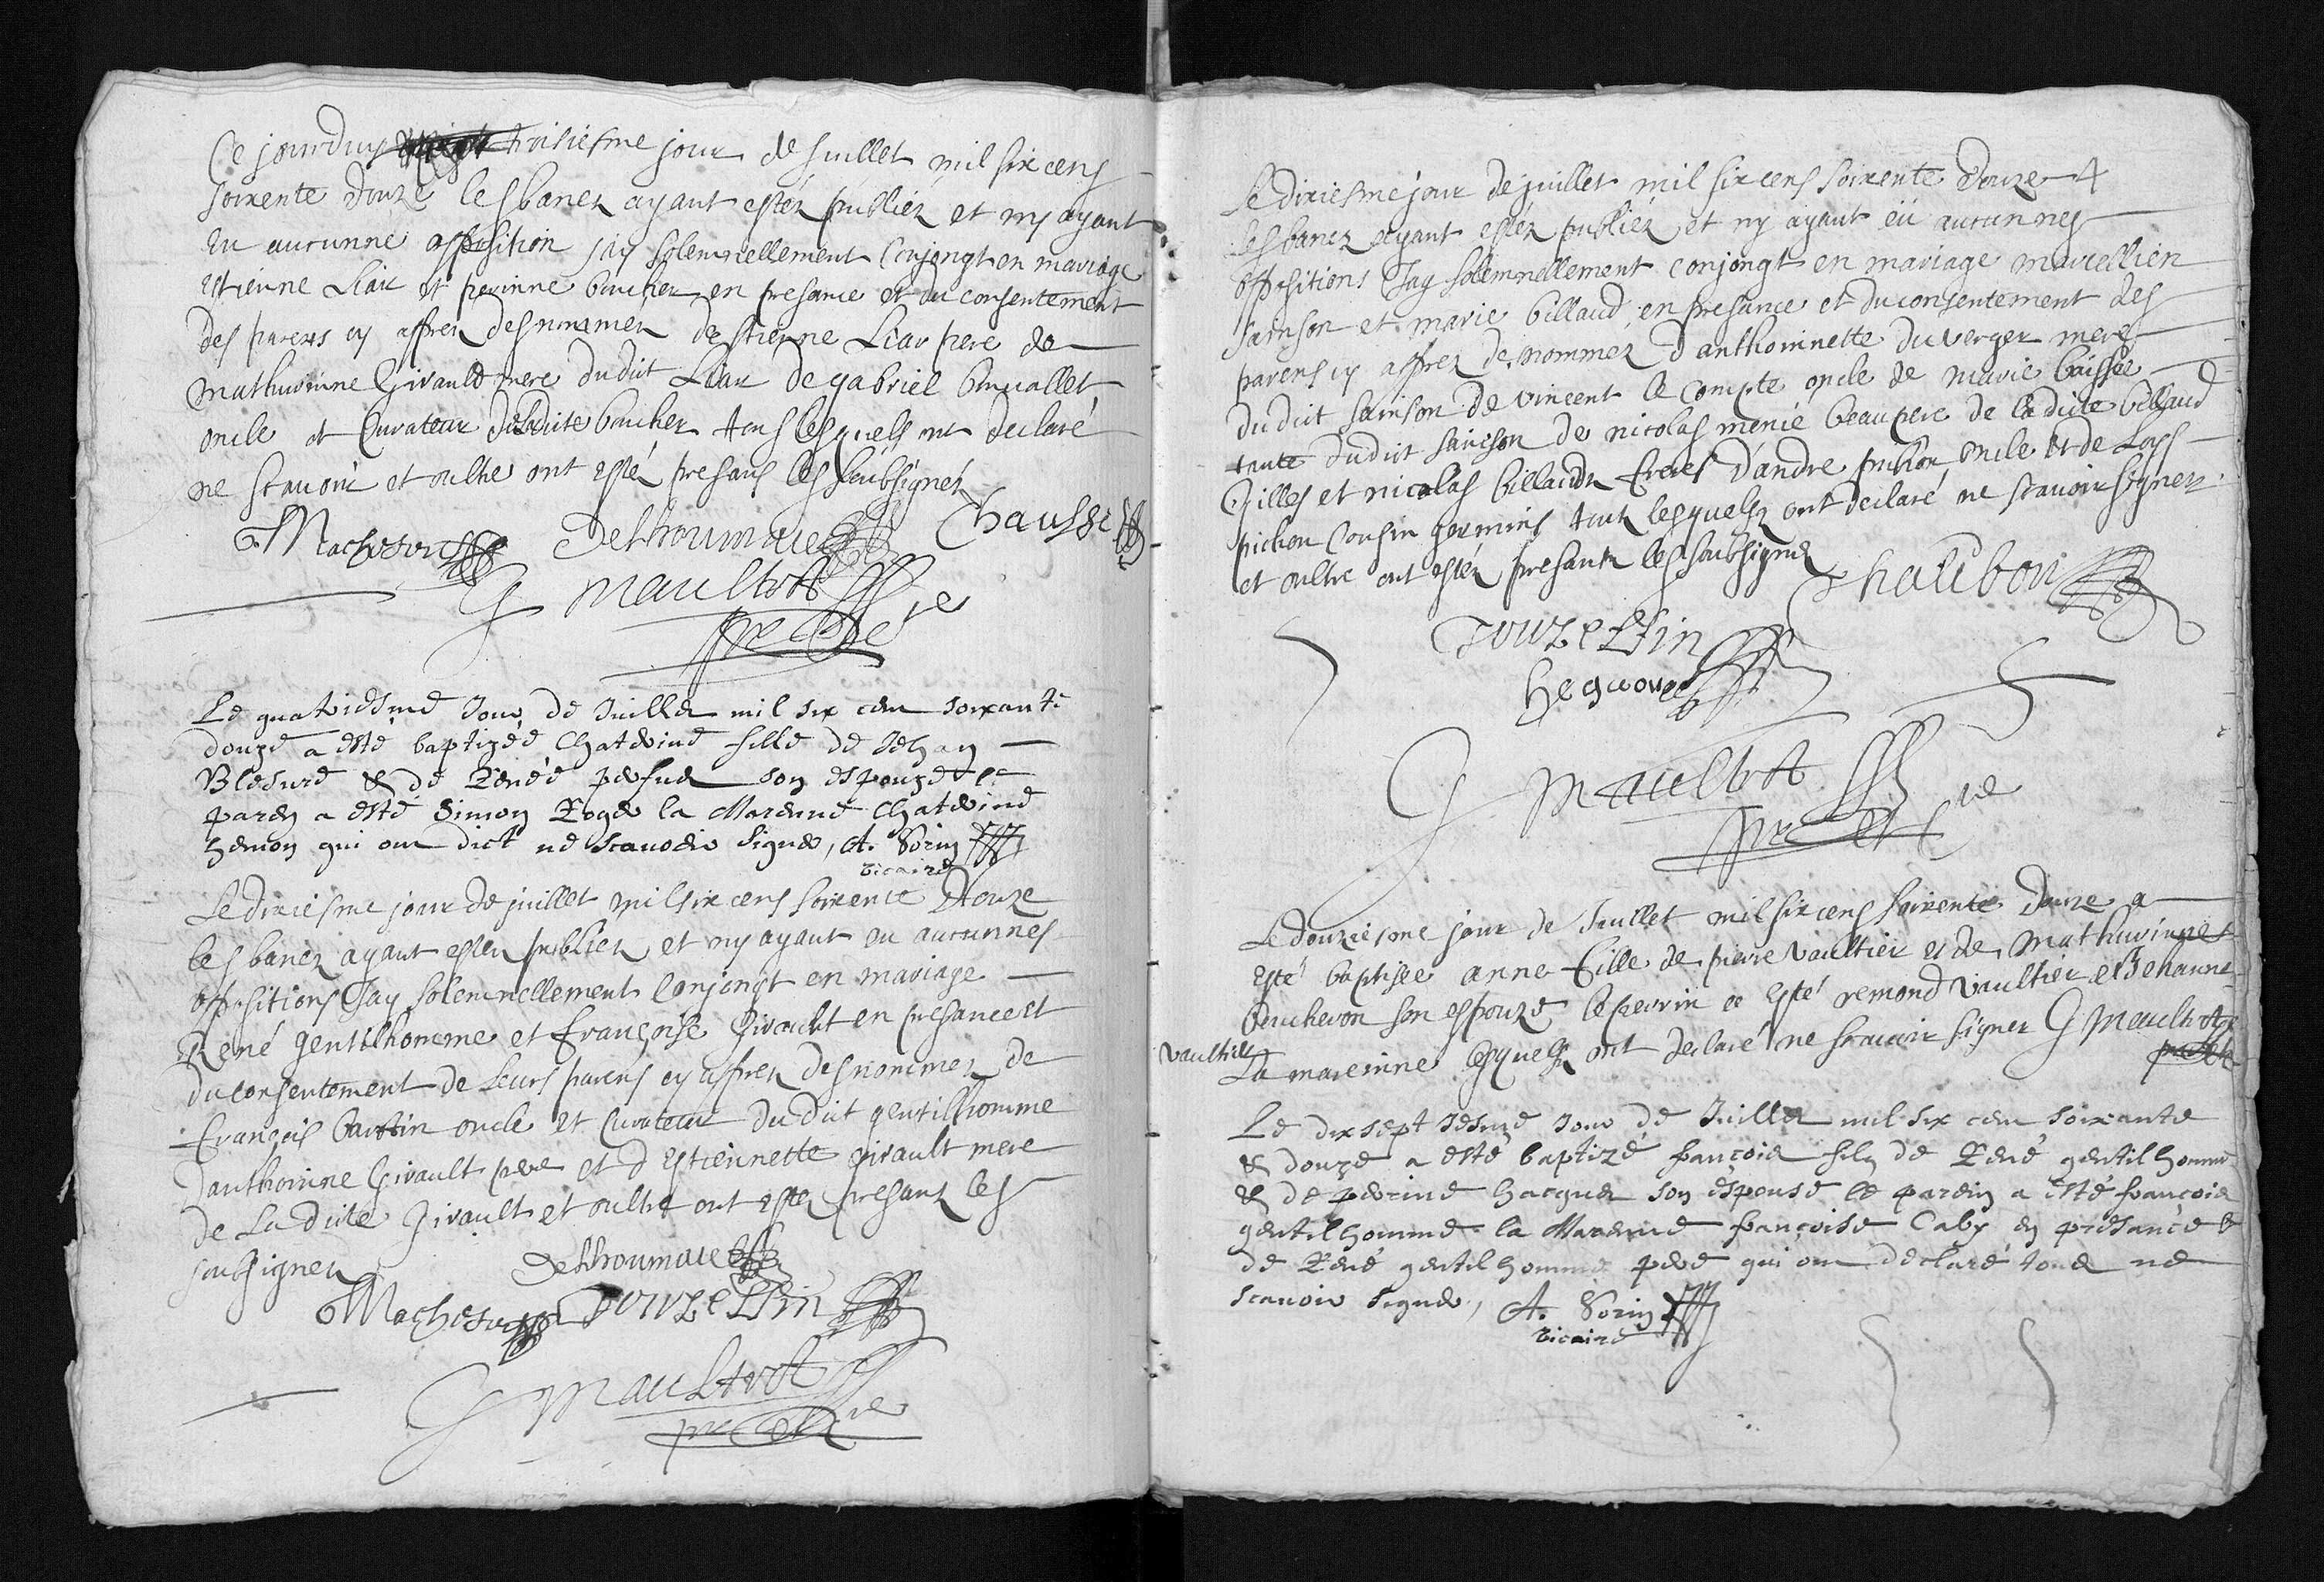 Ce jourduy troisiesme jour de juillet mil six cens
soixente douze les banez ayant estéz publiéz et ny ayant
eu aucunne opposition j'ay solemnellement conjongt en mariage
estienne Liar et perinne boucher en presance et du consentement
des parens cy apprez desnommez destienne Liar pere de
mathurinne Girault mere dudit Liar de gabriel
oncle et curateur de ladite boucher tous lesquels ont declaré
ne scavoir et oultre ont estéz presans les soubsignéz
Delhoumaie Chausse
G Maultrot
pre
Le quatriesme jour de Juillet mil six cens soixante
douze a esté baptizéé Chaterine fille de Jehan
Blesure & de Renéé son espouze le
parein a esté Simon Roger la Mareine Chaterine
Hemon qui ont dict ne scavoir signer, A. Sorin
vicaire
Le dixiesme jour de juillet mil six cens soixente douze
les banez ayant estez publiez et ny ayant eu aucunnes
oppositions Jay solemnellement conjongt en mariage
René gentilhomme et françoise Girault en presance et
du consentement de leurs parens cy apprez desnommez de
françois oncle et curateur dudit gentilhomme
danthoinne Girault pere et d'estiennette girault mere
de Ladite Girault et oultre ont estez presans les
soubsignez
Delhoumaie
Touzelin
G Maultrot
pre
Le dixiesme jour de juillet mil six cens soixente douze 4
les banez ayant estéz publiéz et ny ayant eü aucunnes
oppositions Jay solemnellement conjongt en mariage marcellien
sainson et marie billaud en presance et du consentement des
parens cy apprez denomméz d'anthoinnette du verger mere
dudit sainson de vincent le compte oncle de marie baissée
tante dudit sainson de nicolas menié beaupere de ladite billaud
Gilles et nicolas billaudz freres d'andre pichon oncle et de Loys
pichon cousin germins tout lesquelz ont declaré ne scavoir signer
et oultre ont estéz presantz les soubsignez
Touzelin
G Maultrot
pre
Le douziesme jour de Juillet mil six cens soixente douze a
esté baptisée anne fille de pierre vaultier et de mathurinne
boucheron son espouze le parrin a esté remond vaultier et Jehanne
vaultier
La mareinne lesquelz ont declaré ne scavoir signer G Maultrot
pre
Le dix sept iesme jour de Juillet mil six cens soixante
& douze a esté baptizé françois filz de René gentilhomme
& de perrine hacquet son espouse le parein a esté françois
gentilhomme la Mareine françoise Caby en presance
de René gentilhomme pere qui ont declaré tous ne
scavoir signer, A. Sorin
vicaire